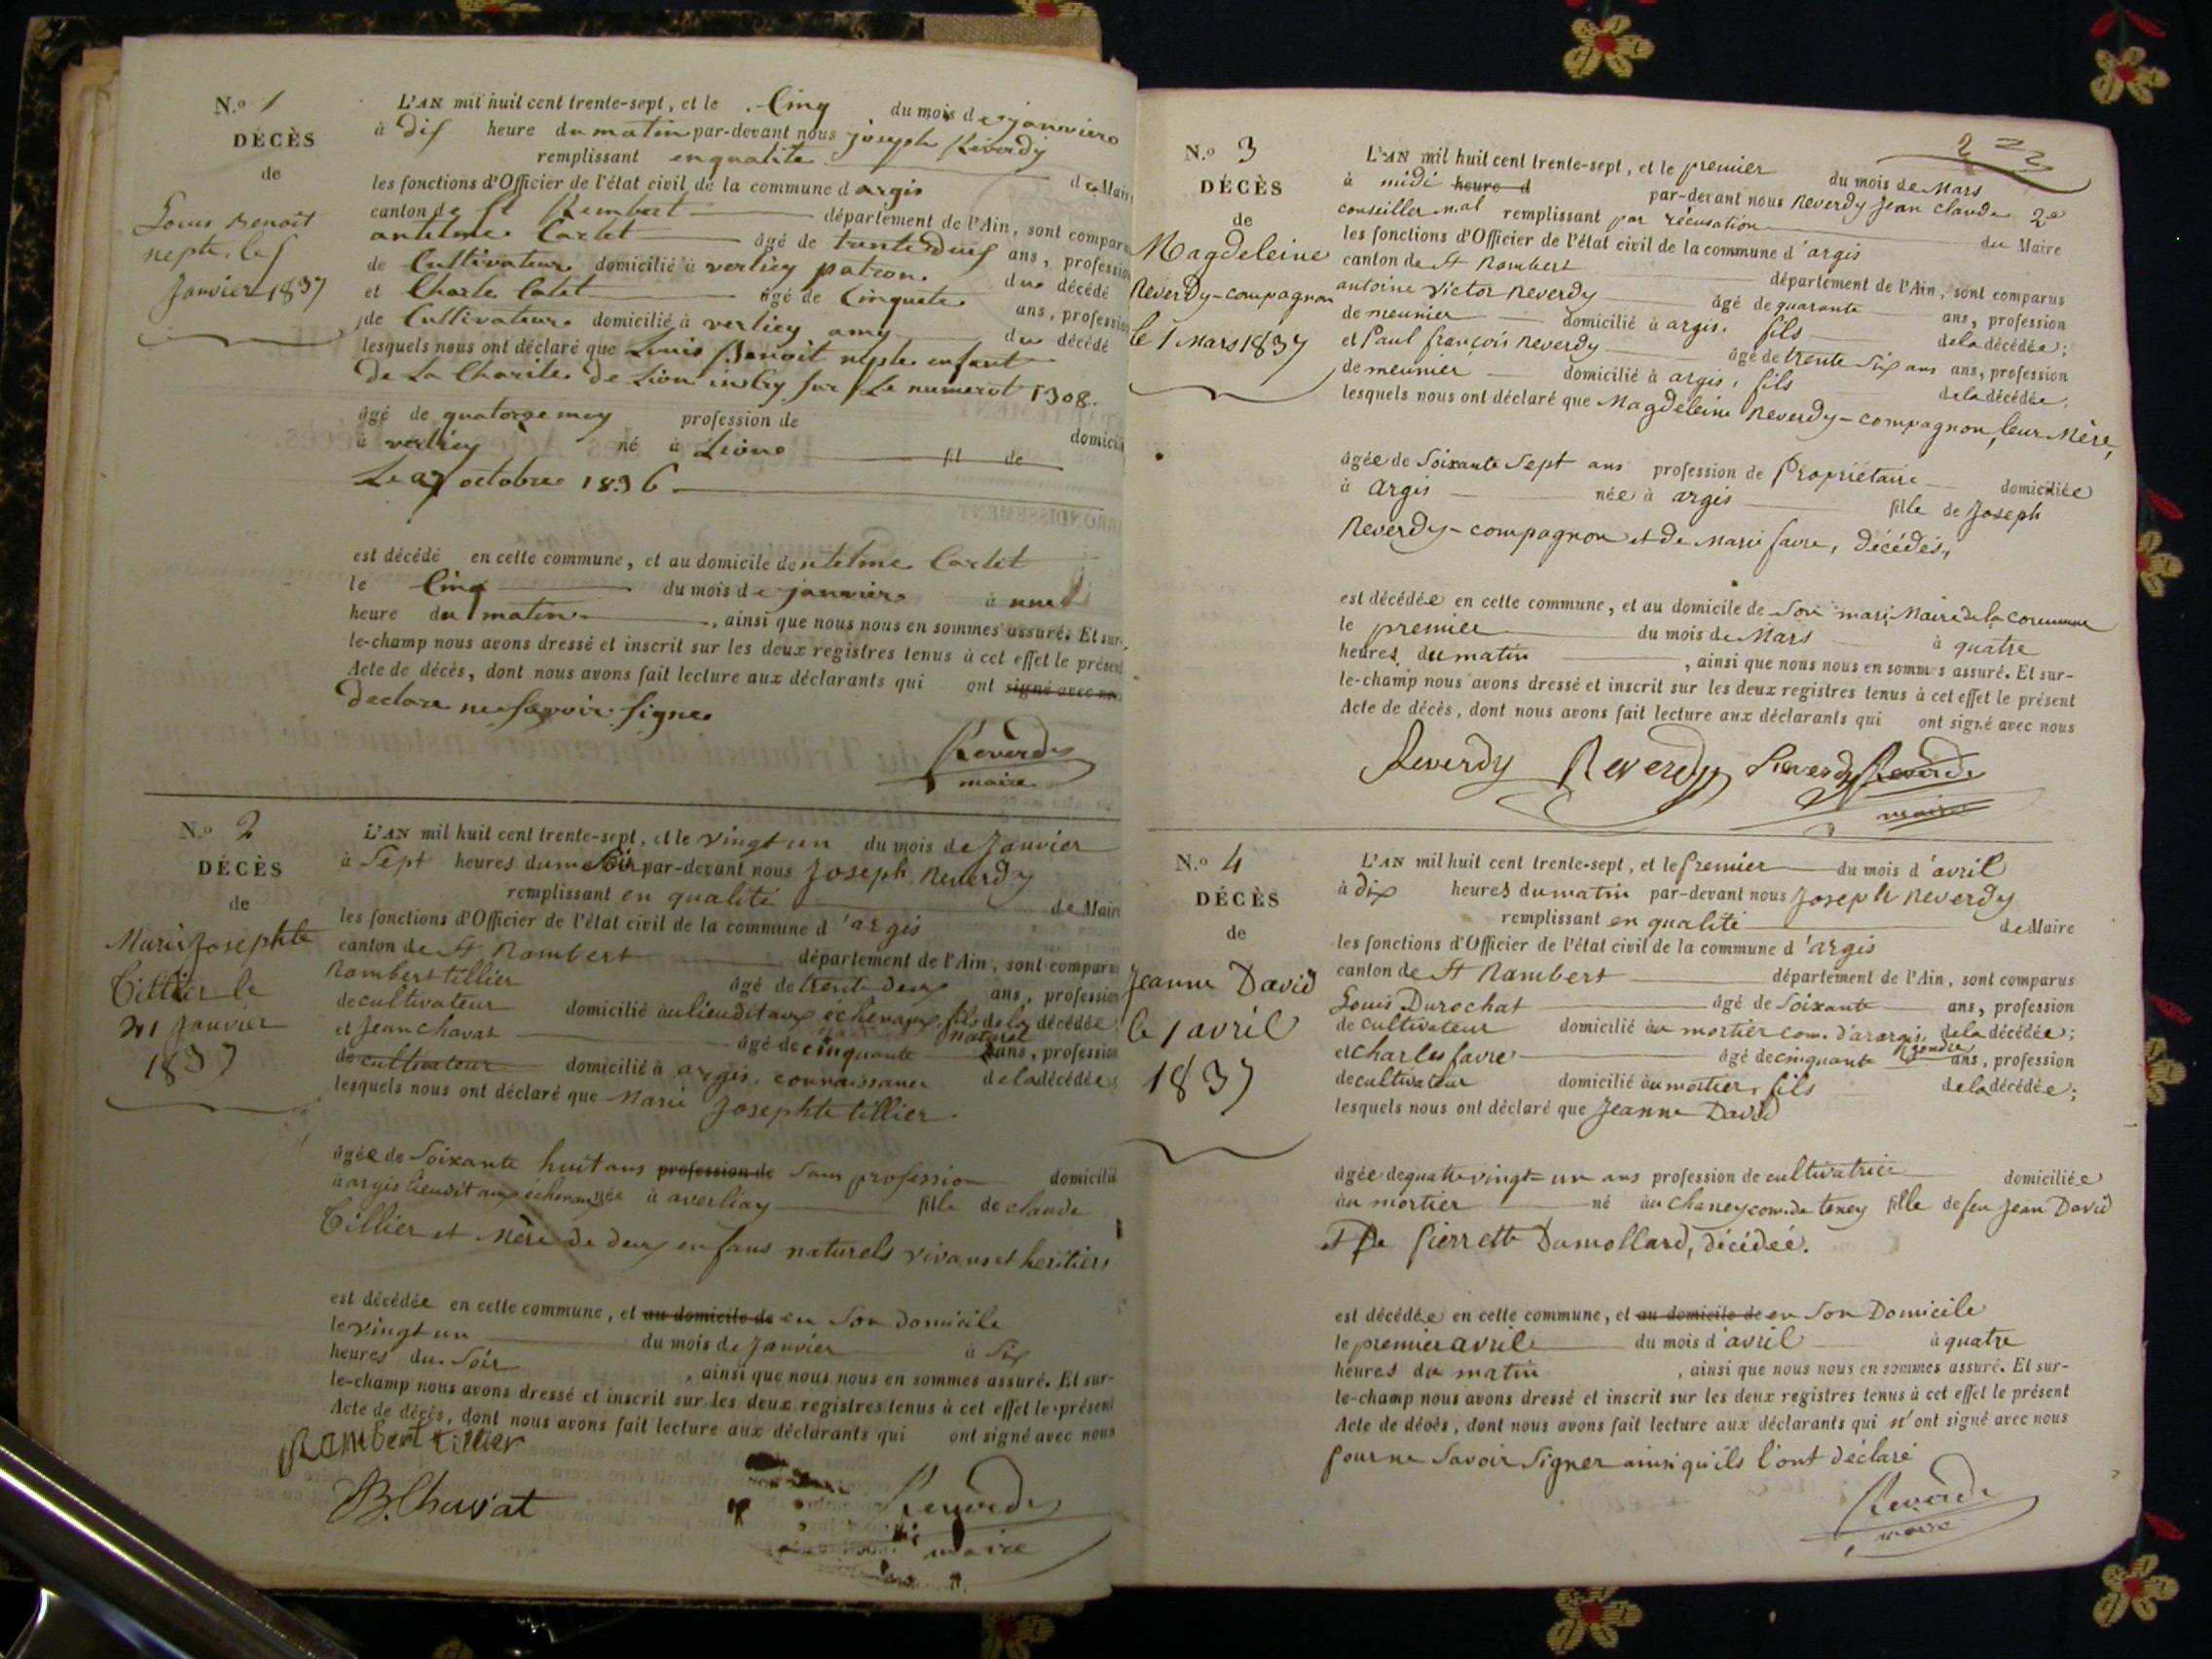 N.o 1
DÉCÈS
de
Louis Benoit
nepte, le 5
Janvier 1837
L'AN mil huit cent trente-sept, et le Cinq du mois de janviere
à dix heure du matin par-devant nous joseph Reverdy
remplissant en qualite de Maire
les fonctions d'Officier de l'état civil de la commune d argis
canton de St Rembert département de l'Ain, sont comparus
antelme Carlet âgé de trente deuf ans, profession
de Cultivateur domicilié à verliey patron du décédé
et Charle Catet âgé de Cinquete ans, profession
de Cultivateur domicilié à verliey amy du décédé
lesquels nous ont déclaré que Louis Benoit nepte enfant
De La Charite de Lion inscry sur Le numerot 1308.
âgé de quatorze moy profession de domicilié
à verliey né à Lione fil de
Le 27 octobre 1836
est décédé en cette commune, et au domicile de antelme Carlet
le Cinq du mois de janviere à une
heure du matin, ainsi que nous nous en sommes assuré. Et sur-
le-champ nous avons dressé et inscrit sur les deux registres tenus à cet effet le présent
Acte de décès, dont nous avons fait lecture aux déclarants qui ont signé avec nous
declare ne savoir signe
Reverdy
maire
N.o 2
DÉCÈS
de
Marie Josephte
Tillier le
21 Janvier
1837
L'AN mil huit cent trente-sept, et le vingt un du mois de Janvier
à Sept heures du Soir par-devant nous Joseph Reverdy
remplissant en qualité de Maire
les fonctions d'Officier de l'état civil de la commune d'argis
canton de St Rambert département de l'Ain, sont comparus
Rambert tillier âgé de trente deux ans, profession
de cultivateur domicilié au lieu dit aux échenaux, fils de la décédée
naturel
et Jean Chavat âgé de cinquante ans, profession
de cultivateur domicilié à argis, connaissance de la décédée
lesquels nous ont déclaré que Marie Josephte tillier
âgée de Soixante huit ans profession de Sans profession domicilié
à argis lieu dit aux échenaux née à averliay fille de claude
Tillier et Mère de deux enfans naturels vivans et heritiers
est décédée en cette commune, et au domicile de en Son Domicile
le vingt un du mois de Janvier à Six
heures du Soir, ainsi que nous nous en sommes assuré. Et sur-
le-champ nous avons dressé et inscrit sur les deux registres tenus à cet effet le présent
Acte de décès, dont nous avons fait lecture aux déclarants qui ont signé avec nous
Rambert tillier
Chavat Reverdy
maire
2
N.o 3
DÉCÈS
de
Magdeleine
Reverdy-compagnon
le 1 Mars 1837
L'AN mil huit cent trente-sept, et le premier du mois de Mars
à midi heure d par-devant nous Reverdy Jean Claude 2e
conseiller m.al remplissant par récusation du Maire
les fonctions d'Officier de l'état civil de la commune d'argis
canton de St Rambert département de l'Ain, sont comparus
antoine victor Reverdy âgé de quarante ans, profession
de meunier domicilié à argis, fils de la décédée;
et Paul françois Reverdy âgé de trente Six ans ans, profession
de meunier domicilié à argis, fils de la décédée,
lesquels nous ont déclaré que Magdeleine Reverdy-compagnon, leur Mère,
âgée de Soixante Sept ans profession de Propriétaire domiciliée
à Argis née à argis fille de Joseph
Reverdy-compagnon et de Marie favre, décédés,
est décédée en cette commune, et au domicile de Son mari Maire de la commune
le premier du mois de Mars à quatre
heures du matin, ainsi que nous nous en sommes assuré. Et sur-
le-champ nous avons dressé et inscrit sur les deux registres tenus à cet effet le présent
Acte de décès, dont nous avons fait lecture aux déclarants qui ont signé avec nous
Reverdy Reverdy Reverdy Reverdy
maire
N.o 4
DÉCÈS
de
Jeanne David
le 1 avril
1837
L'AN mil huit cent trente-sept, et le premier du mois d'avril
à dix heures du matin par-devant nous Joseph Reverdy
remplissant en qualité de Maire
les fonctions d'Officier de l'état civil de la commune d'argis
canton de St Rambert département de l'Ain, sont comparus
Louis Durochat âgé de Soixante ans, profession
de cultivateur domicilié au mortier com. d'arargis, de la décédée;
gendre
et charles favre âgé de cinquante ans, profession
de cultivateur domicilié au mortier, fils de la décédée;
lesquels nous ont déclaré que Jeanne David
âgée de quatre vingt = un ans profession de cultivatrice domiciliée
au mortier né au Chaney com. de tenay fille de feu Jean David
et De Pierrette Dumollard, décédée.
est décédée en cette commune, et au domicile de en Son Domicile
le premier avril du mois d'avril à quatre
heures du matin, ainsi que nous nous en sommes assuré. Et sur-
le-champ nous avons dressé et inscrit sur les deux registres tenus à cet effet le présent
Acte de décès, dont nous avons fait lecture aux déclarants qui n'ont signé avec nous
pour ne Savoir Signer ainsi qu'ils l'ont déclaré
Reverdy
maire